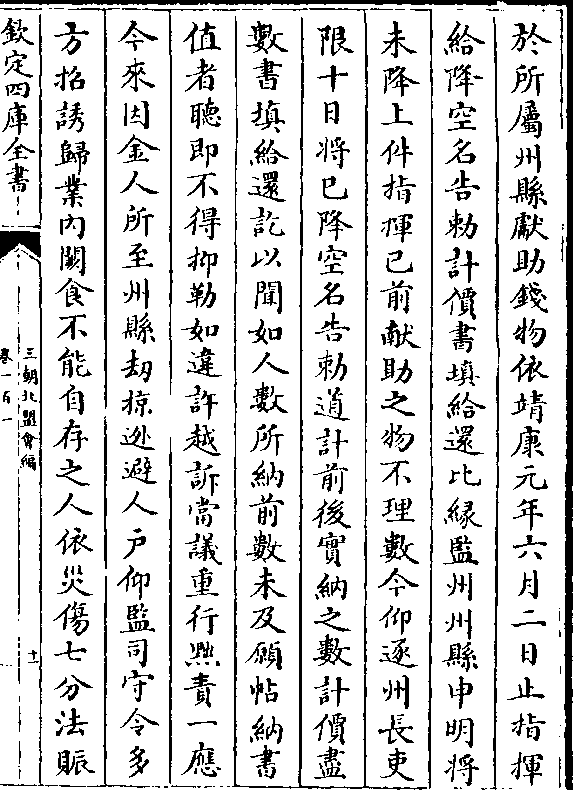 於所屬州縣獻助錢物依靖康元年六月二日止指揮
給降空名告勅計價書填給還比緣監州州縣申明將
未降上件指揮已前献助之物不理數今仰逐州長吏
限十日將已降空名告勅道計前後實納之數計價盡
數書填給還訖以聞如人數所納前數未及願帖納書
值者聽即不得抑勒如違許越訴當議重行㸃責一應
今來因金人所至州縣刼掠迯避人户仰監司守令多
方招誘歸業内闕食不能自存之人依災傷七分法賑
欽定四庫全書
三朝北盟會編
卷一百一
十一